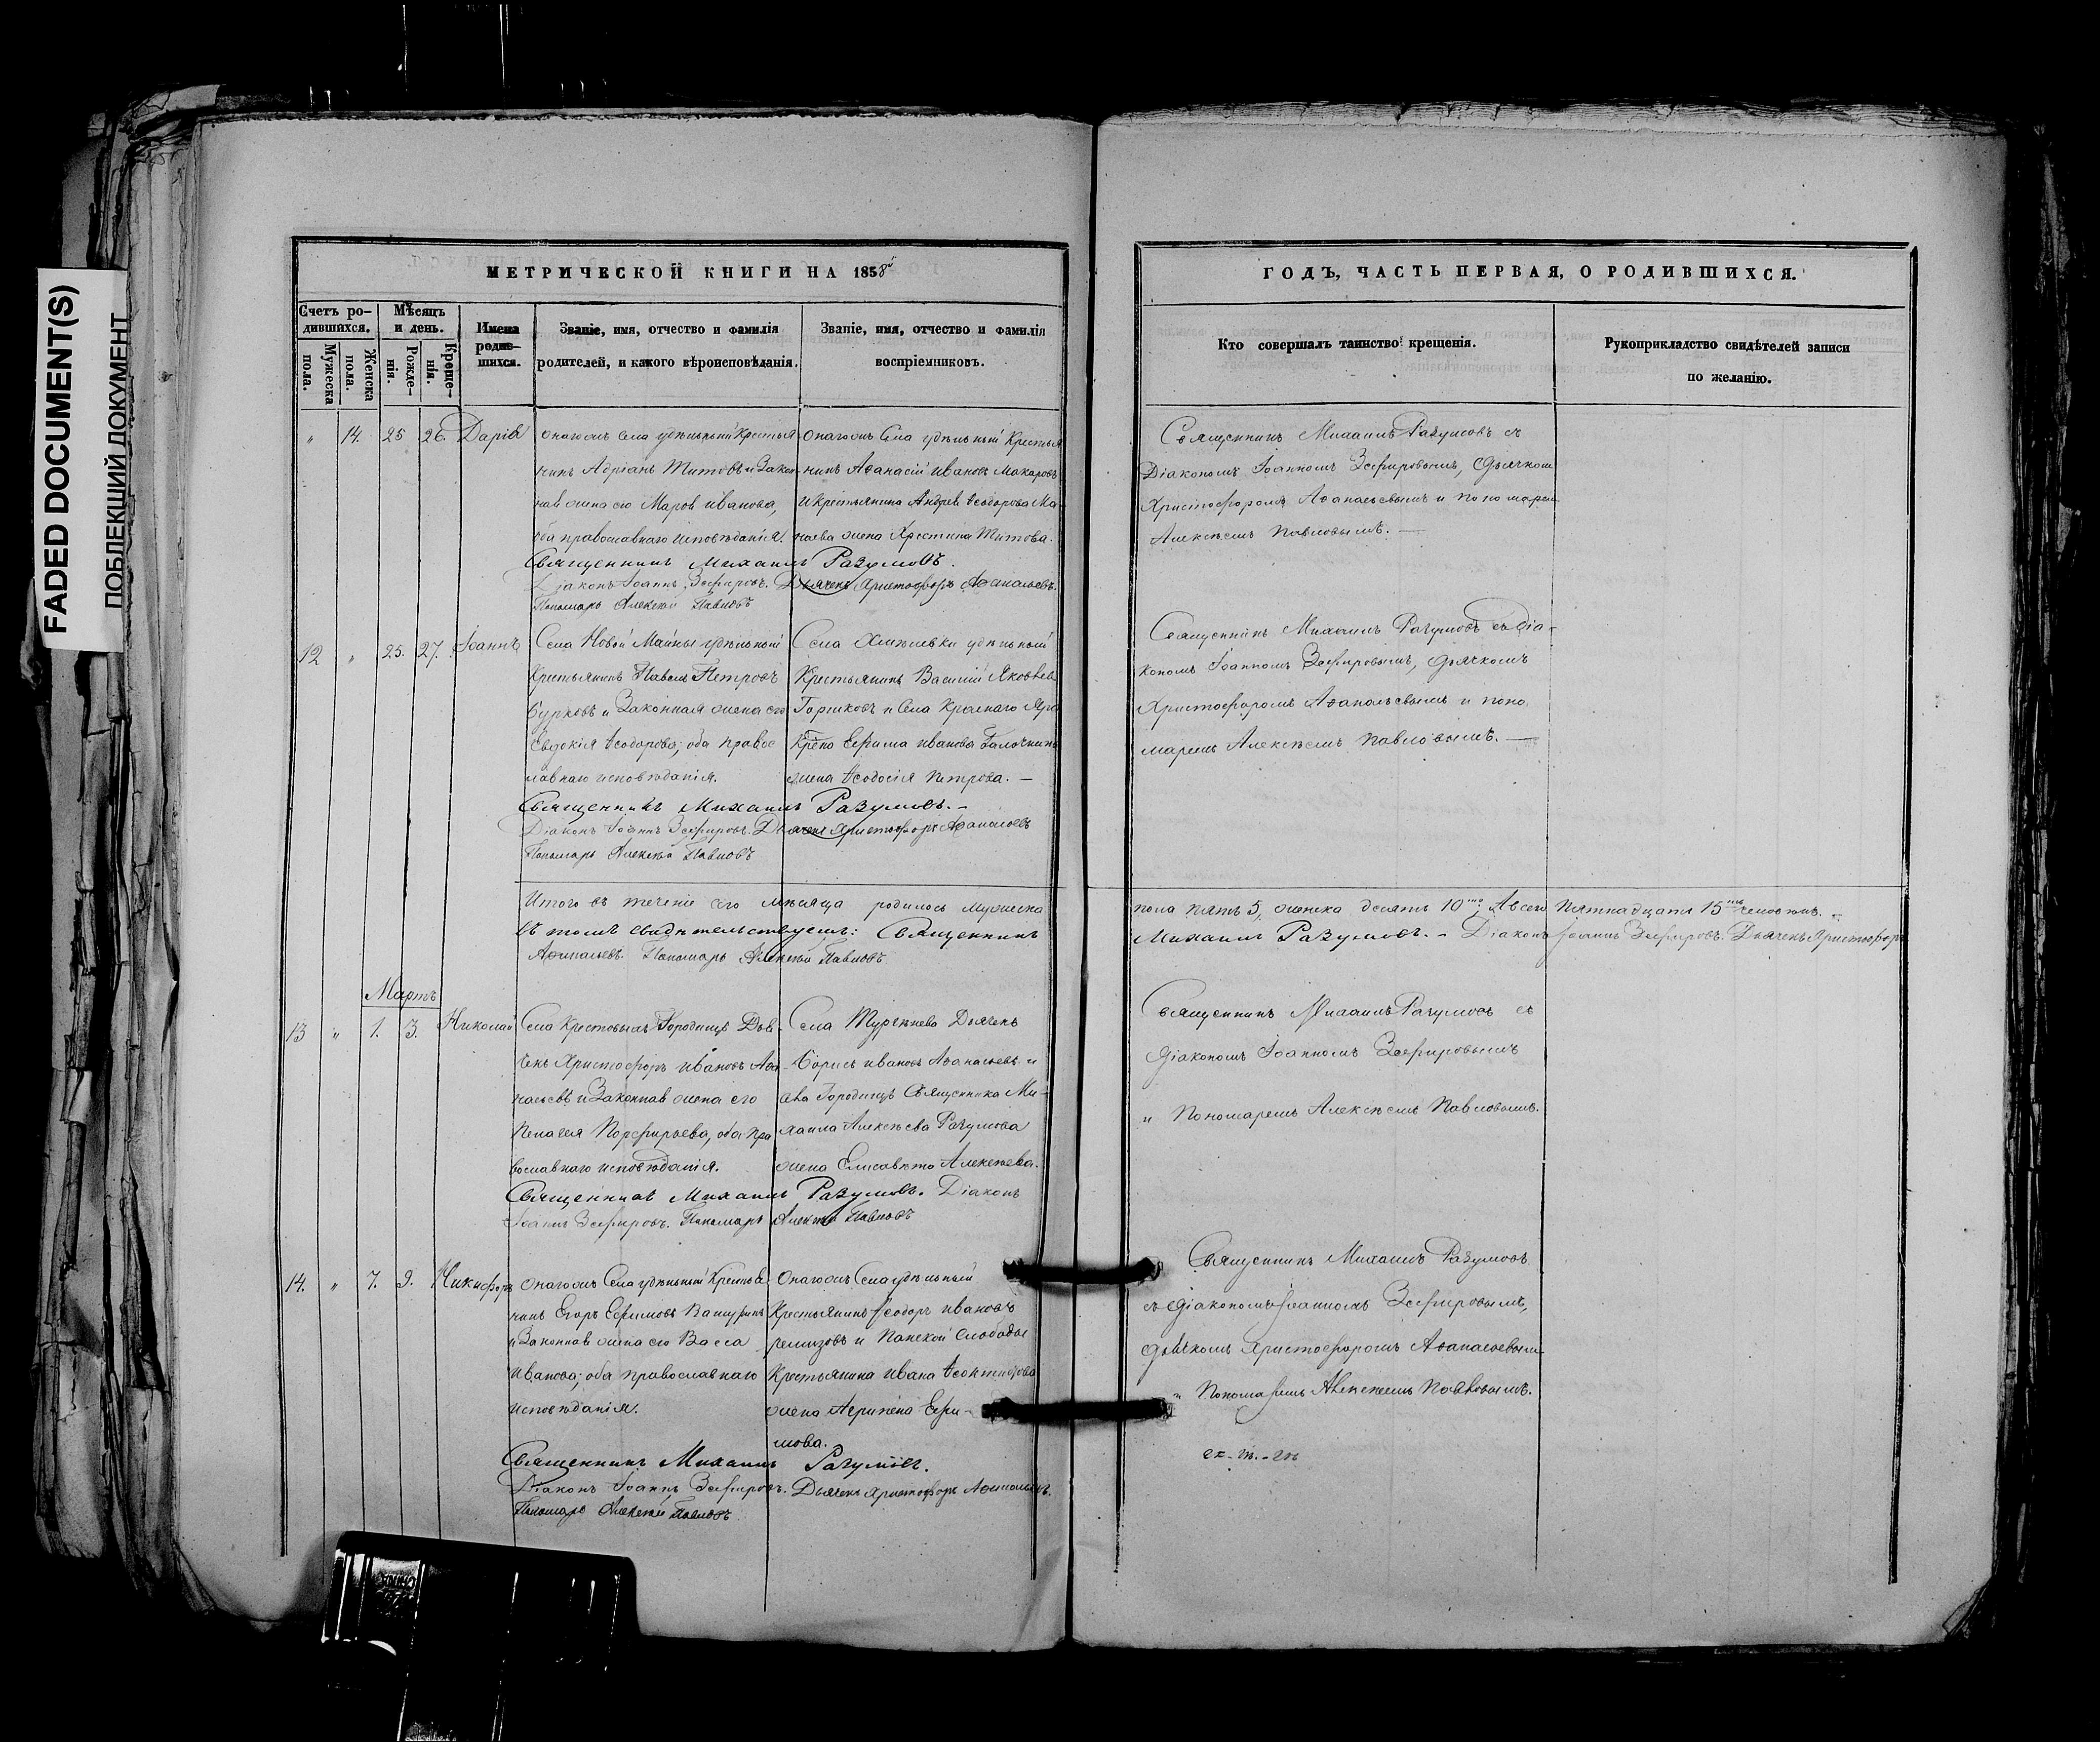 FADED DOCUMENT(S)
ПОБЛЕКШИЙ ДОКУМЕНТ
МЕТРИЧЕСКОЙ КНИГИ НА 1858й
Счетъ ро-
дившихся.
Мужеска
пола.
Женска
пола.
Мѣсяцъ
и день.
Рожде-
нія.
Креще-
нія.
Имена
родив-
шихся.
Званіе, имя, отчество и фамилія
родителей, и какого вѣроисповѣданія.
Званіе, имя, отчество и фамилія
воспріемниковъ.
" 14. 25 26. Дарія
онагожъ Села удѣльный Крестья
нинъ Адріанъ Титовъ и Закон-
ная жена его Марѳа Иванова,
оба православнаго исповѣданія.
Онагожъ Села удѣльный Крестья
нинъ Аѳанасій Ивановъ Макаровъ
и крестьянина Андрея Ѳеодорова Ма-
жена Христина Титова.
Священникъ Михаилъ Разумовъ.
Діаконъ Іоаннъ Зефировъ. Дьячекъ Христофоръ Аѳанасьевъ.
Пономарь Алексѣй Павловъ
12 " 25. 27. Іоаннъ
Села Новой Майны удѣльный
Крестьянинъ Павелъ Петровъ
Бурковъ и Законная жена его
Евдокія Ѳеодорова; оба правос
лавнаго исповѣданія.
Села удѣльный
Крестьянинъ Василій Яковлевъ
Горшковъ и Села Краснаго Яра
Ефима Иванова
жена Ѳеодосія Петрова. —
Священникъ Михаилъ Разумовъ. —
Діаконъ Іоаннъ Зефировъ. Дьячекъ Христофоръ Аѳанасьевъ
Пономарь Алексѣй Павловъ
Итого въ теченіе сего мѣсяца родилось мужеска
въ томъ свидѣтельствуемъ: Священникъ
Аѳанасьевъ. Пономарь Алексѣй Павловъ
Мартъ
13 " 1. 3. Николай
Села Крестовыхъ Городищъ Дья-
чекъ Христофоръ Ивановъ Аѳа
насьевъ и Законная жена его
Пелагея Порфирьева, оба пра
вославнаго исповѣданія.
Села Тургенева Дьячекъ
Борисъ Ивановъ Аѳанасьевъ и
Села Городищъ Священника Ми-
хаила Алексѣева Разумова
жена Елисавета Алексѣева.
Священникъ Михаилъ Разумовъ. Діаконъ
Іоаннъ Зефировъ. Пономарь Алексѣй Павловъ
14. " 7. 9. Никифоръ
Онагожъ Села удѣльный Крестья
нинъ Егоръ Ефимовъ
и Законная жена его Васса
Иванова; оба православнаго
исповѣданія.
Онагожъ Села удѣльный
Крестьянинъ Ѳеодоръ Ивановъ
ремизовъ и Панской Слободы
Крестьянина Ивана Ѳеоктистова
жена Агрипена Ефи-
мова.
Священникъ Михаилъ Разумовъ.
Діаконъ Іоаннъ Зефировъ. Дьячекъ Христофоръ Аѳанасьевъ.
Пономарь Алексѣй Павловъ
ГОДЪ, ЧАСТЬ ПЕРВАЯ, О РОДИВШИХСЯ.
Кто совершалъ таинство крещенія.
Рукоприкладство свидѣтелей записи
по желанію.
Священникъ Михаилъ Разумовъ съ
Діакономъ Іоанномъ Зефировымъ, дьячкомъ
Христофоромъ Аѳанасьевымъ и пономаремъ
Алексѣемъ Павловымъ. —
Священникъ Михаилъ Разумовъ съ діа-
кономъ Іоанномъ Зефировымъ, дьячкомъ
Христофоромъ Аѳанасьевымъ и поно
маремъ Алексѣемъ Павловымъ. —
пола пять 5, женска десять 10ть, А всего пятнадцать 15ть человѣкъ. —
Михаилъ Разумовъ. — Діаконъ Іоаннъ Зефировъ. Дьячекъ Христофоръ
Священникъ Михаилъ Разумовъ съ
діакономъ Іоанномъ Зефировымъ
и Пономаремъ Алексѣемъ Павловымъ.
Священникъ Михаилъ Разумовъ
съ діакономъ Іоанномъ Зефировымъ,
дьячкомъ Христофоромъ Аѳанасьевымъ
и Пономаремъ Алексѣемъ Павловымъ.